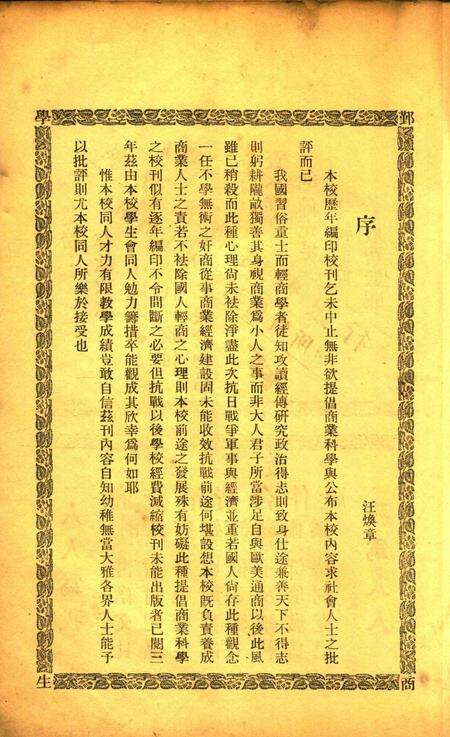 鄞
商
學
生
序
汪煥章
本校歷年編印校刊乞未中止無非欲提倡商業科學與公布本校內容求社會人士之批
評而已
我國習俗重士而輕商學者徒知攻讀經傳研究政治得志則致身仕途兼善天下不得志
則躬耕隴畝獨善其身視商業爲小人之事而非大人君子所當涉足自與歐美通商以後此風
雖已稍殺而此種心理尙未袪除淨盡此次抗日戰爭軍事與經濟並重若國人尙存此種觀念
一任不學無術之奸商從事商業經濟建設固未能收效抗戰前途何堪設想本校旣負責養成
商業人士之責若不袪除國人輕商之心理則本校前途之發展殊有妨礙此種提倡商業科學
之校刊似有逐年編印不令間斷之必要但抗戰以後學校經費減縮校刊未能出版者已閱三
年茲由本校學生會同人勉力籌措卒能觀成其欣幸爲何如耶
惟本校同人才力有限敎學成績豈敢自信茲刊內容自知幼稚無當大雅各界人士能予
以批評則尤本校同人所樂於接受也